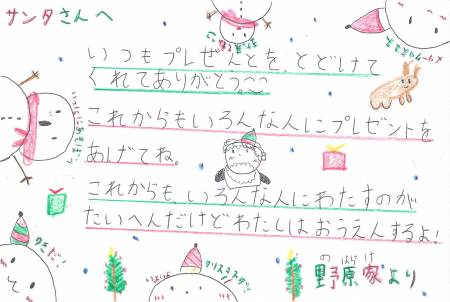 サンタさんへ
いつもプレぜんとを、とどけて
くれてありがとう。
これからもいろんな人にプレゼントを
あげてね。
これからも、いろんな人にわたすのが
たいへんだけどわたしはおうえんするよ!
のはらけ
野原家より
クリスマスダ!